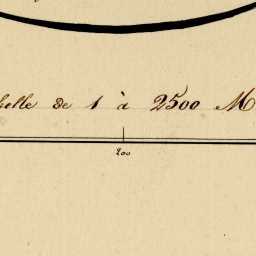 elle de 1 à 2500 M
200